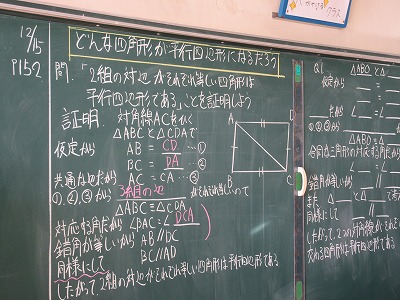 12/15
P152
どんな四角形が平行四辺形になるだろう
問.「2組の対辺がそれぞれ等しい四角形は
平行四辺形である」ことを証明しよう
証明 対角線ACをひく
△ABCと△CDAで
仮定から AB = CD …①
BC = DA …②
共通な辺だから AC = CA …③
①,②,③から 3組の辺 がそれぞれ等しいので
△ABC≡△CDA
対応する角だから ∠BAC=∠DCA
錯角が等しいから AB//DC
同様にして BC//AD
したがって2組の対辺がそれぞれ等しい四角形は平行四辺形である
A
D
B
C
Q1
△ABOと△
仮定から
だから ∠
①,②,③から
△ABO≡△
合同な三角形の対応する角だから
錯角が等しいから
また △ と△ で
同様にして //
したがって、2つの対角線がそれぞれの
交わる四角形は平行四辺形である